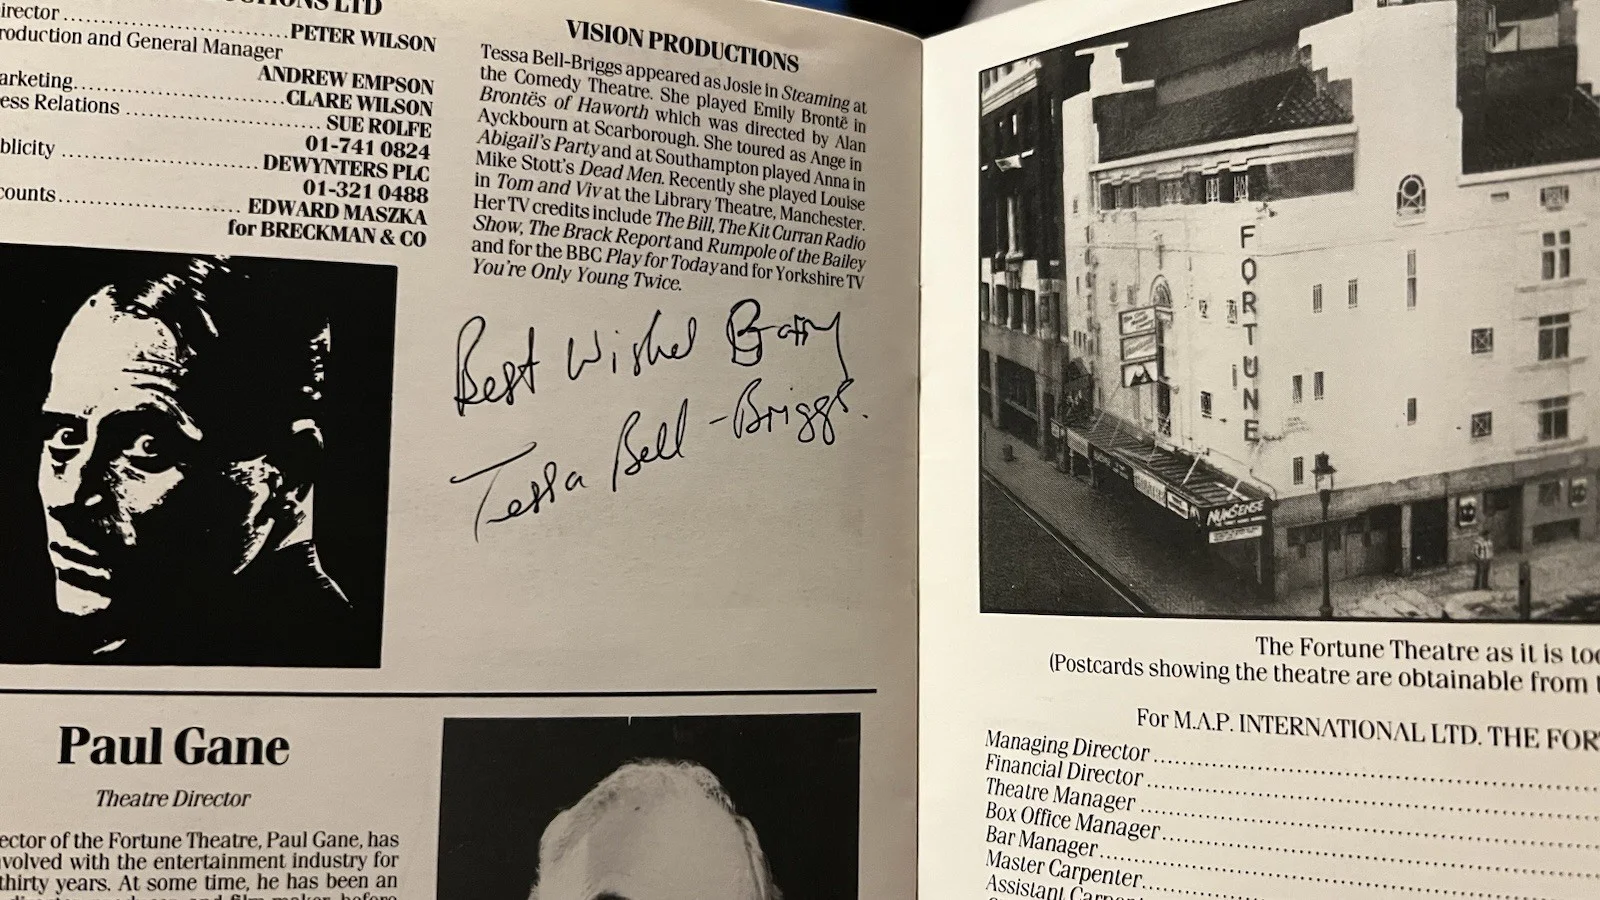 PETER WILSON
roduction and General Manager
ANDREW EMPSON
arketing..........................CLARE WILSON
ess Relations ..........................
SUE ROLFE
01-741 0824
blicity ..........................DEWYNTERS PLC
01-321 0488
counts..........................EDWARD MASZKA
for BRECKMAN & CO
VISION PRODUCTIONS
Tessa Bell-Briggs appeared as Josie in Steaming at
the Comedy Theatre. She played Emily Brontë in
Brontës of Haworth which was directed by Alan
Ayckbourn at Scarborough. She toured as Ange in
Abigail's Party and at Southampton played Anna in
Mike Stott's Dead Men. Recently she played Louise
in Tom and Viv at the Library Theatre, Manchester.
Her TV credits include The Bill, The Kit Curran Radio
Show, The Brack Report and Rumpole of the Bailey
and for the BBC Play for Today and for Yorkshire TV
You're Only Young Twice.
Best Wishes Barry
Tessa Bell-Briggs.
Paul Gane
Theatre Director
ector of the Fortune Theatre, Paul Gane, has
volved with the entertainment industry for
thirty years. At some time, he has been an
FORTUNE
NUNSENSE
The Fortune Theatre as it is
(Postcards showing the theatre are obtainable from
For M.A.P. INTERNATIONAL LTD. THE FOR
Managing Director ..........................
Financial Director ..........................
Theatre Manager ..........................
Box Office Manager..........................
Bar Manager..........................
Master Carpenter..........................
Assistant